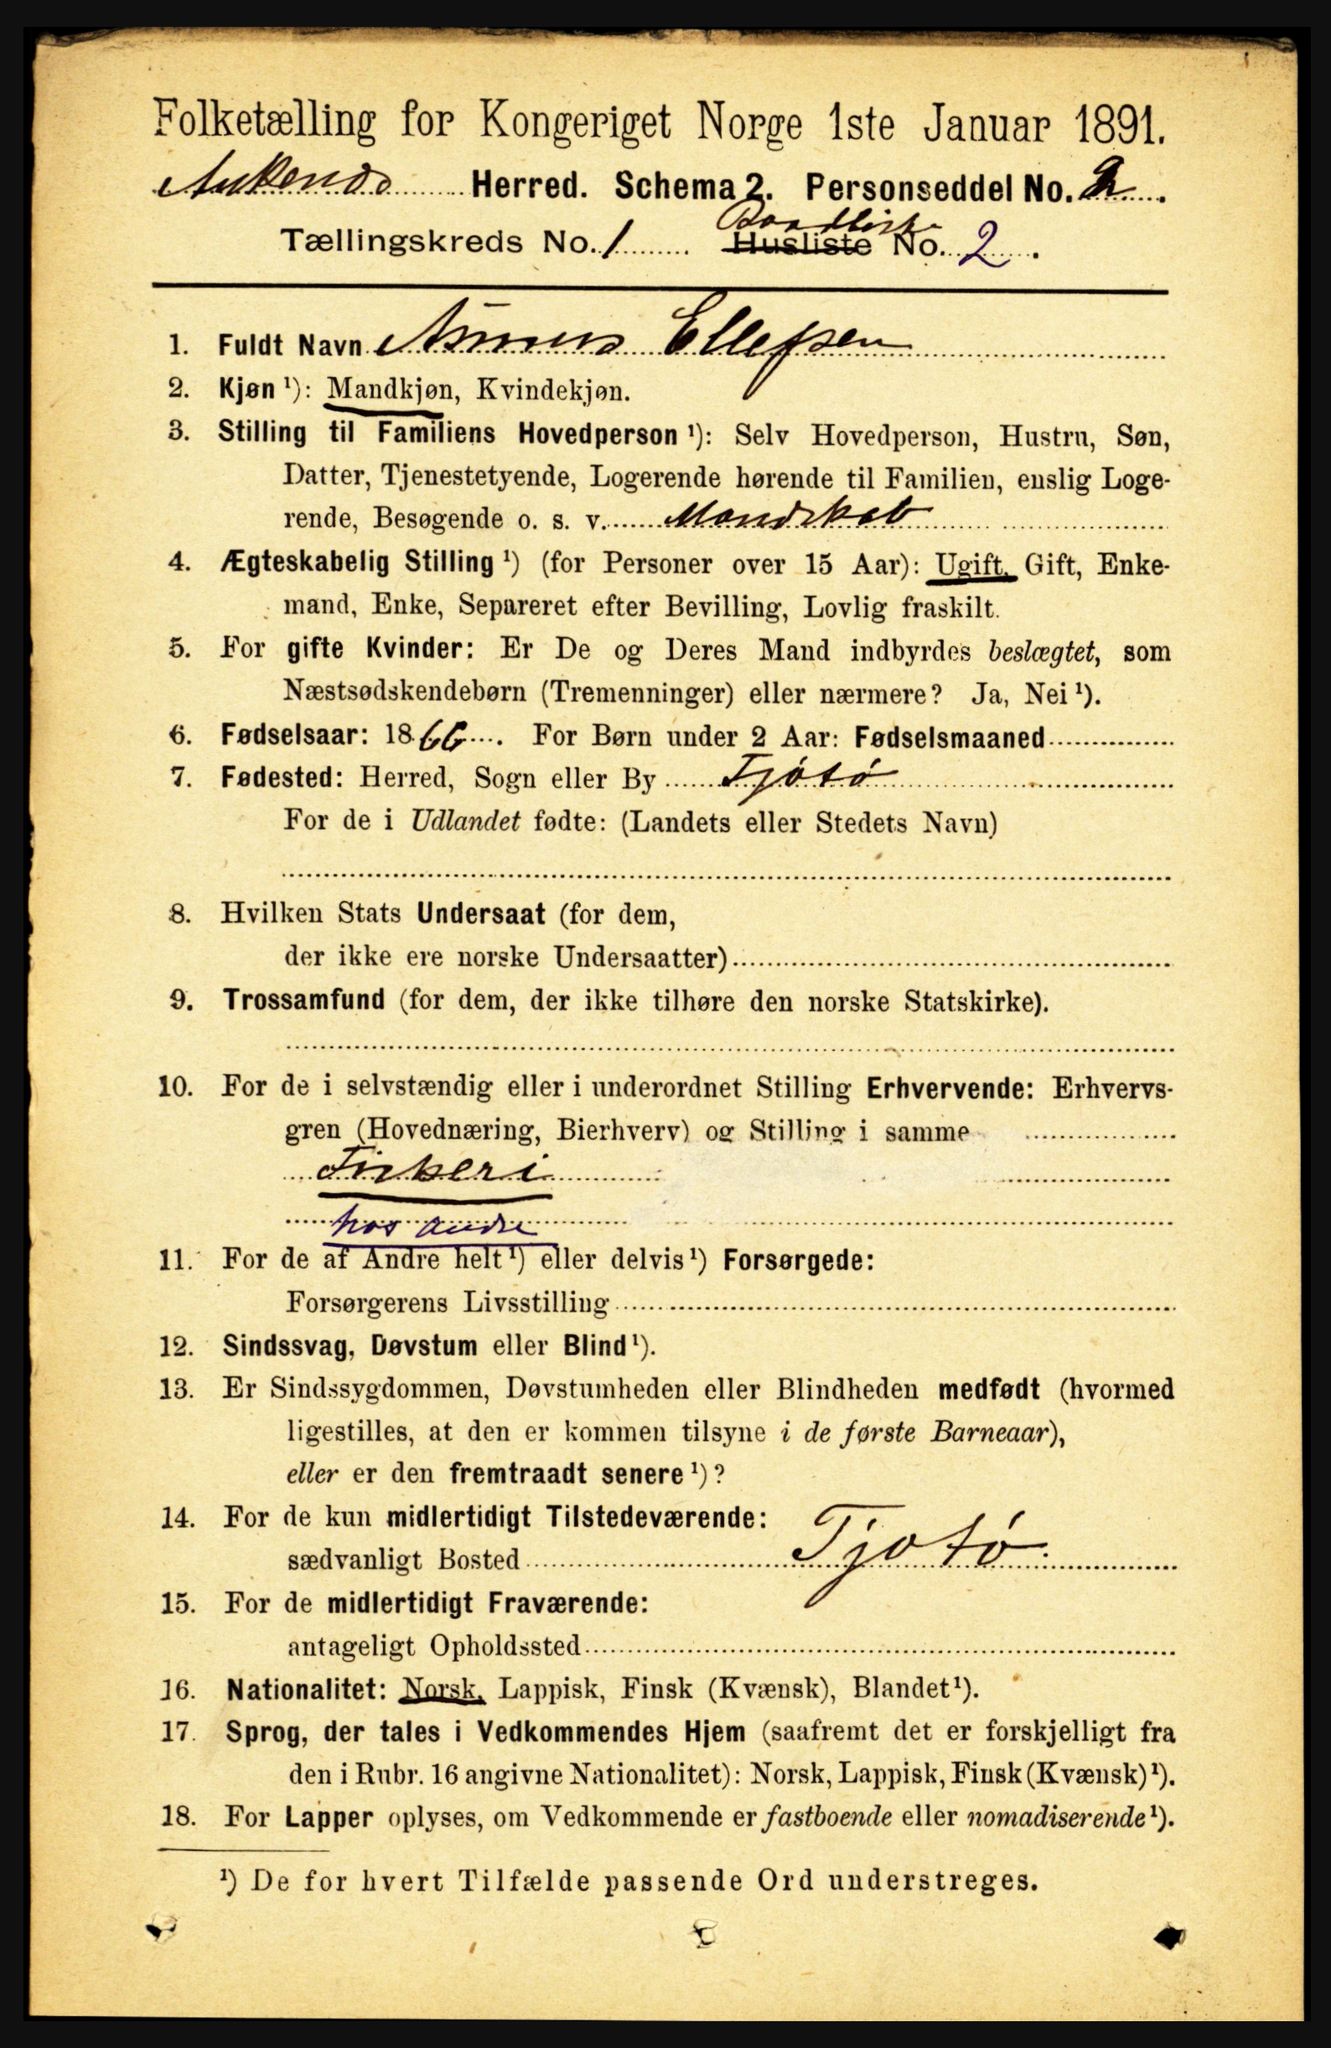 Folketælling for Kongeriget Norge 1ste Januar 1891.
Ankenes Herred. Schema 2. Personseddel No. 2
Baadliste
Tællingskreds No. 1 Husliste No. 2.
1. Fuldt Navn Asmus Ellefsen
2. Kjøn ¹): Mandkjøn, Kvindekjøn.
3. Stilling til Familiens Hovedperson ¹): Selv Hovedperson, Hustru, Søn,
Datter, Tjenestetyende, Logerende hørende til Familien, enslig Loge-
rende, Besøgende o. s. v. Mandskab
4. Ægteskabelig Stilling ¹) (for Personer over 15 Aar): Ugift, Gift, Enke-
mand, Enke, Separeret efter Bevilling, Lovlig fraskilt.
5. For gifte Kvinder: Er De og Deres Mand indbyrdes beslægtet, som
Næstsødskendebørn (Tremenninger) eller nærmere? Ja, Nei ¹).
6. Fødselsaar: 1866. For Børn under 2 Aar: Fødselsmaaned
7. Fødested: Herred, Sogn eller By Tjøtø
For de i Udlandet fødte: (Landets eller Stedets Navn)
8. Hvilken Stats Undersaat (for dem,
der ikke ere norske Undersaatter)
9. Trossamfund (for dem, der ikke tilhøre den norske Statskirke).
10. For de i selvstændig eller i underordnet Stilling Erhvervende: Erhvervs-
gren (Hovednæring, Bierhverv) og Stilling i samme
Fiskeri
hos andre
11. For de af Andre helt ¹) eller delvis ¹) Forsørgede:
Forsørgerens Livsstilling
12. Sindssvag, Døvstum eller Blind ¹).
13. Er Sindssygdommen, Døvstumheden eller Blindheden medfødt (hvormed
ligestilles, at den er kommen tilsyne i de første Barneaar),
eller er den fremtraadt senere ¹)?
14. For de kun midlertidigt Tilstedeværende:
sædvanligt Bosted Tjøtø
15. For de midlertidigt Fraværende:
antageligt Opholdssted
16. Nationalitet: Norsk, Lappisk, Finsk (Kvænsk), Blandet ¹).
17. Sprog, der tales i Vedkommendes Hjem (saafremt det er forskjelligt fra
den i Rubr. 16 angivne Nationalitet): Norsk, Lappisk, Finsk (Kvænsk) ¹).
18. For Lapper oplyses, om Vedkommende er fastboende eller nomadiserende ¹).
¹) De for hvert Tilfælde passende Ord understreges.